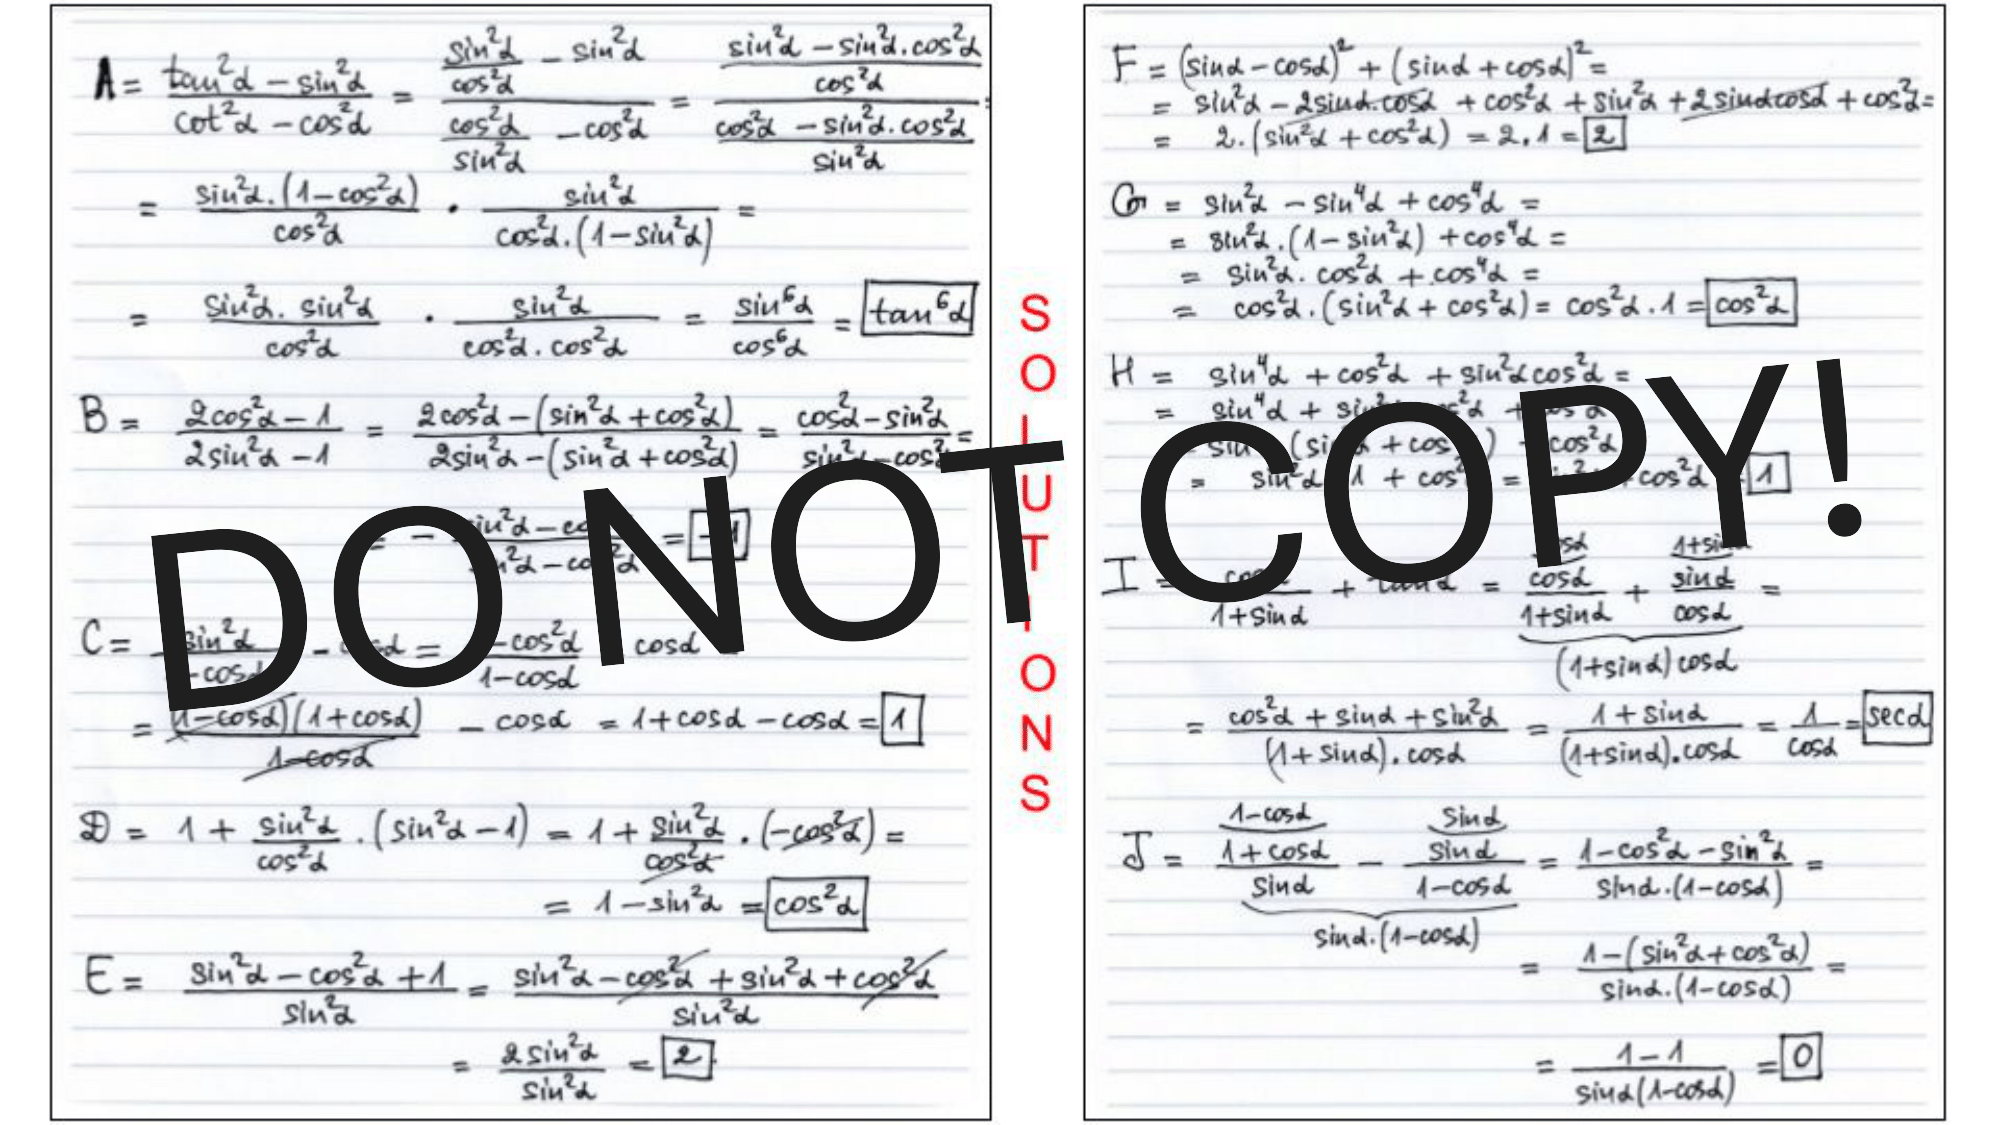 A = (tan²α − sin²α)/(cot²α − cos²α) = (sin²α/cos²α − sin²α)/(cos²α/sin²α − cos²α) = ((sin²α − sin²α.cos²α)/cos²α)/((cos²α − sin²α.cos²α)/sin²α) =
= sin²α.(1−cos²α)/cos²α · sin²α/(cos²α.(1−sin²α)) =
= sin²α. sin²α/cos²α · sin²α/(cos²α. cos²α) = sin⁶α/cos⁶α = tan⁶α
B = (2cos²α − 1)/(2sin²α − 1) = (2cos²α − (sin²α + cos²α))/(2sin²α − (sin²α + cos²α)) = (cos²α − sin²α)/(sin²α − cos²α) =
= −
= −1
C = sin²α − cosα = −cos²α/(1−cosα) cosα
= (1−cosα)(1+cosα)/(1−cosα) − cosα = 1+cosα − cosα = 1
D = 1 + sin²α/cos²α .(sin²α − 1) = 1 + sin²α/cos²α · (−cos²α) =
= 1 − sin²α = cos²α
E = (sin²α − cos²α + 1)/sin²α = (sin²α − cos²α + sin²α + cos²α)/sin²α
= 2sin²α/sin²α = 2
S
O
L
U
T
I
O
N
S
DO NOT COPY!
F = (sinα − cosα)² + (sinα + cosα)² =
= sin²α − 2sinα.cosα + cos²α + sin²α + 2sinαcosα + cos²α =
= 2.(sin²α + cos²α) = 2.1 = 2
G = sin²α − sin⁴α + cos⁴α =
= sin²α.(1−sin²α) + cos⁴α =
= sin²α. cos²α + cos⁴α =
= cos²α.(sin²α + cos²α) = cos²α.1 = cos²α
H = sin⁴α + cos²α + sin²αcos²α =
= sin⁴α +
+ cos²α
= sin²α 1 + cos² = cos²α 1
I = /(1+sinα) + tanα = cosα/(1+sinα) + sinα/cosα =
(1+sinα)cosα
= (cos²α + sinα + sin²α)/((1+sinα).cosα) = (1 + sinα)/((1+sinα).cosα) = 1/cosα = secα
1−cosα sinα
J = (1+cosα)/sinα − sinα/(1−cosα) = (1−cos²α − sin²α)/(sinα.(1−cosα)) =
sinα.(1−cosα)
= (1−(sin²α+cos²α))/(sinα.(1−cosα)) =
= (1−1)/(sinα(1−cosα)) = 0